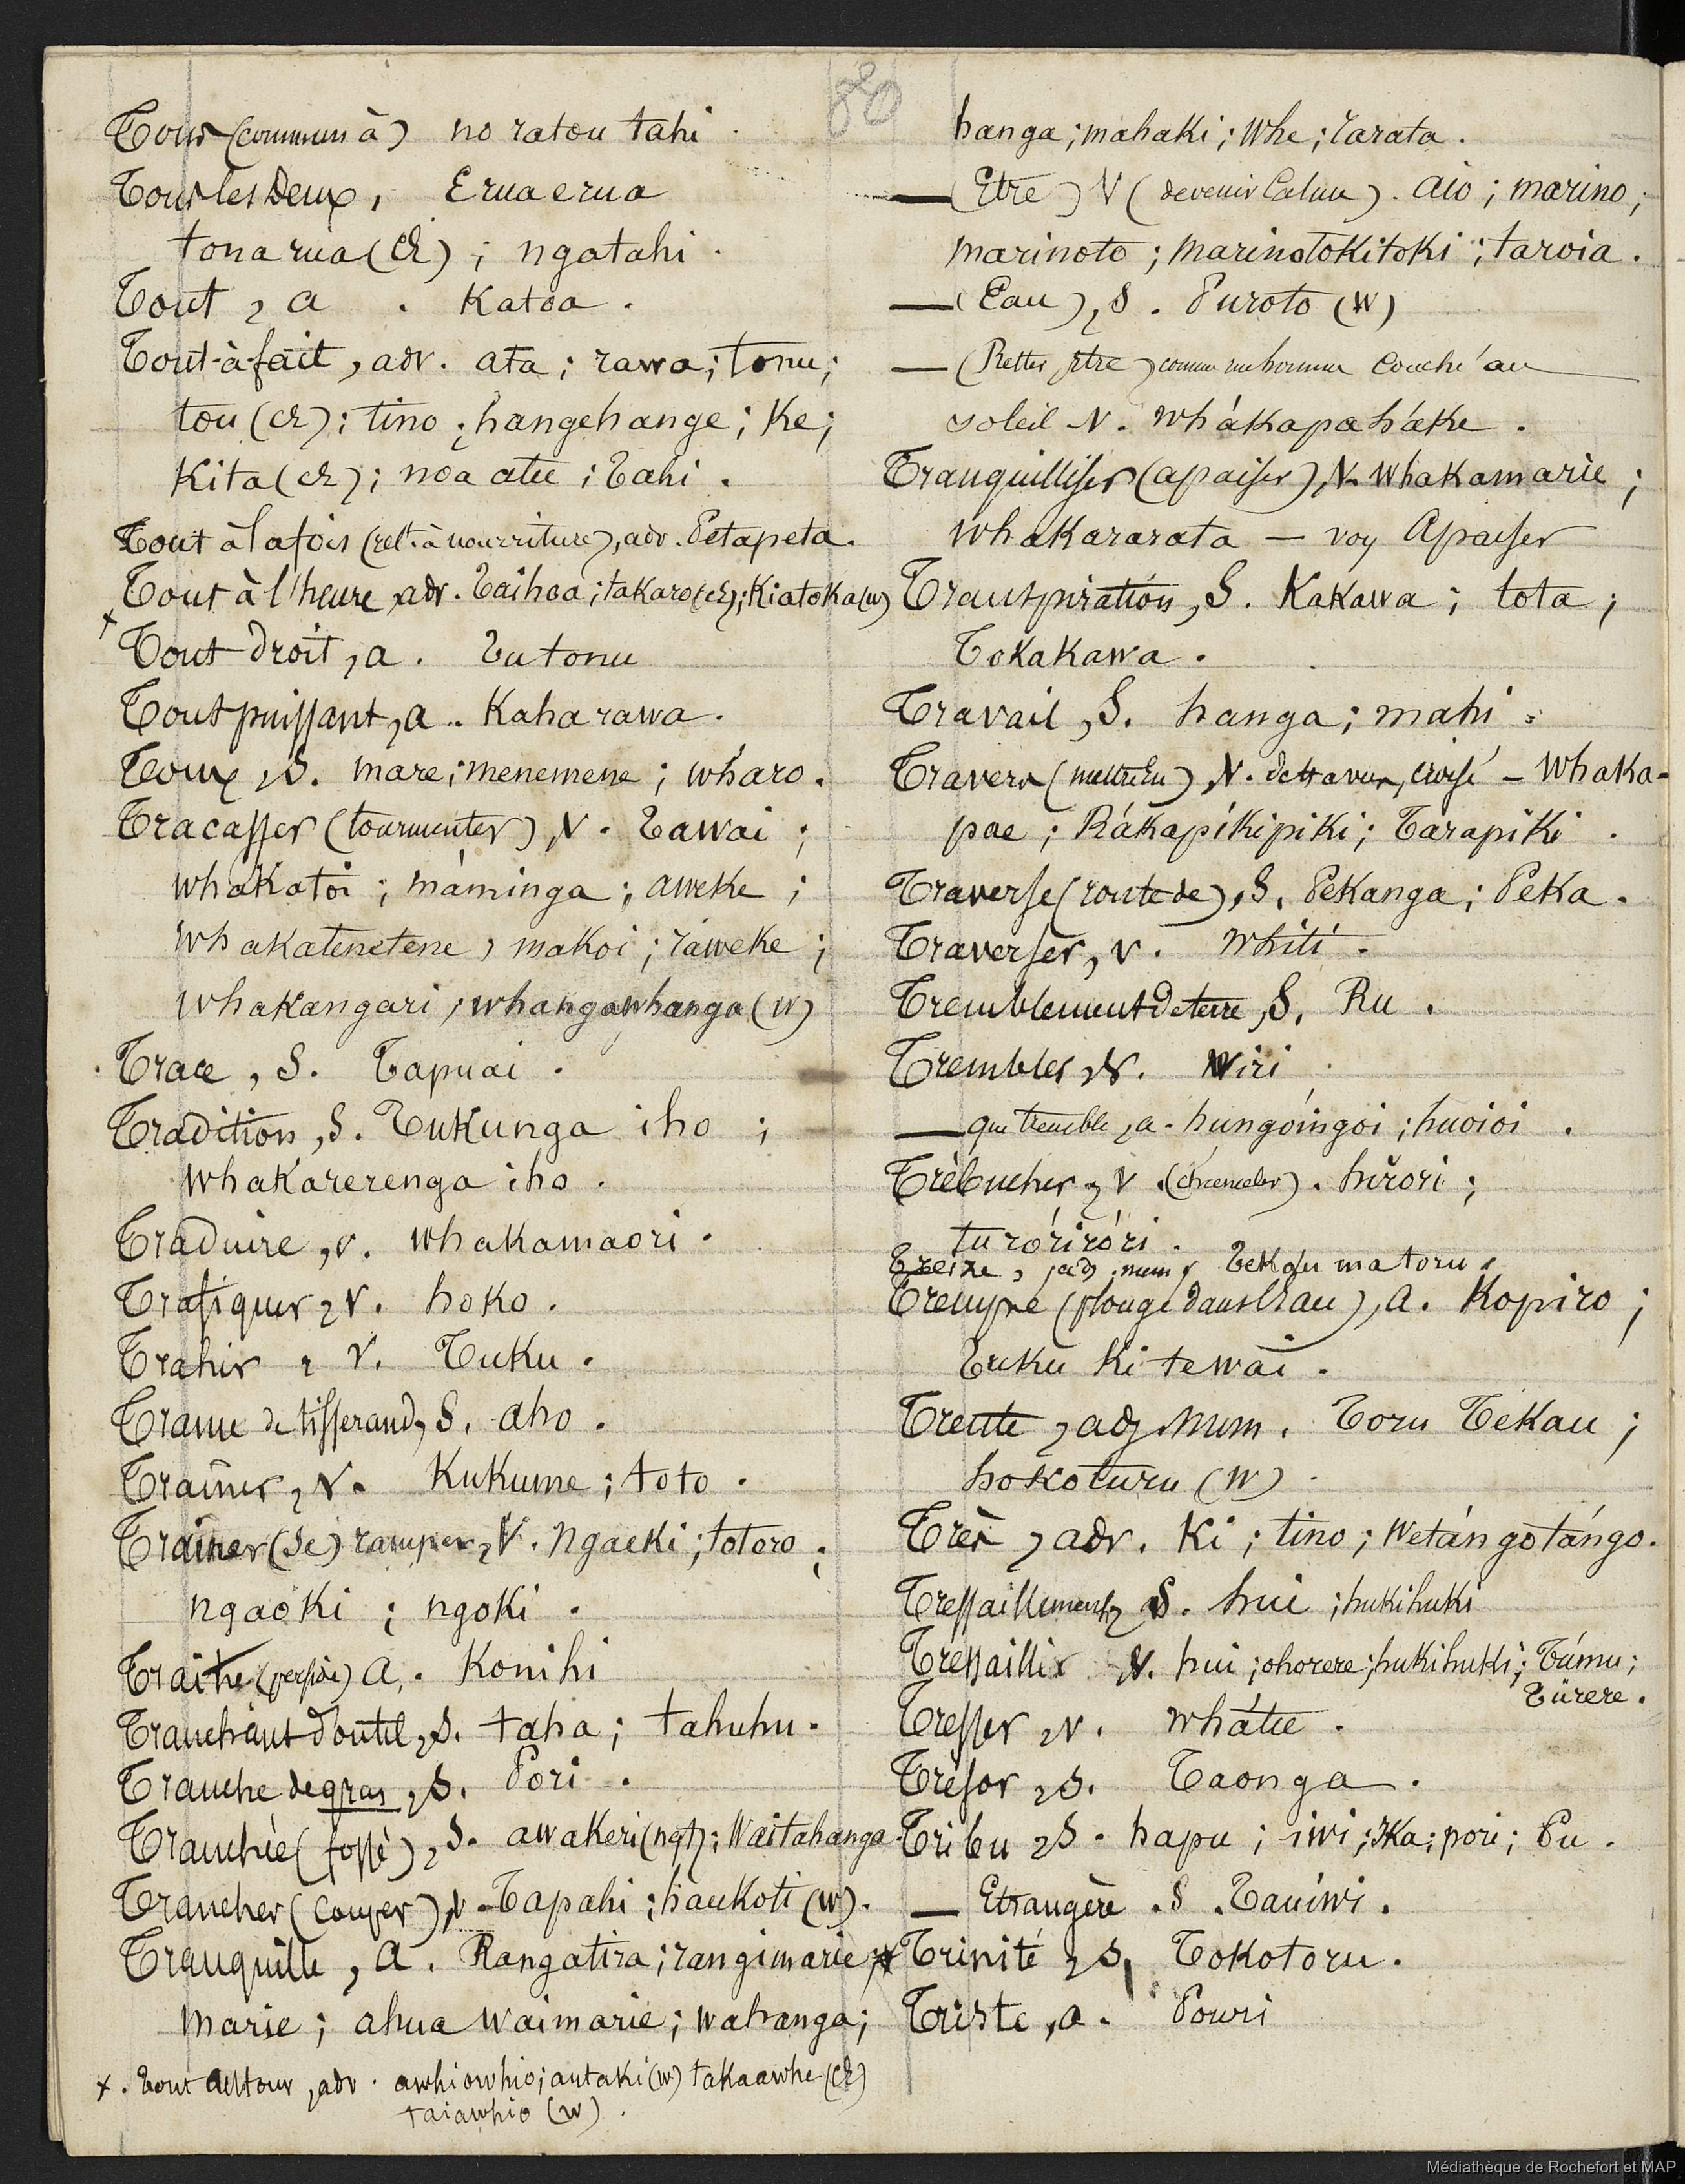 80
Tous (commun à) no ratou tahi.
Tous les Deux, Erua erua
tona rua (ch); ngatahi.
Tout, a. Katoa.
Tout-à-fait, adv. ata; rawa; tonu;
tou (ch); tino; hangehange; Ke;
Kita (ch); noa atu; Tahi.
Tout à la fois (relt. à nourriture), adv. Petapeta.
Tout à l'heure, adv. Taihoa; takaro (ch); Kiatoka (w)
x
Tout droit, a. Tu tonu
Tout puissant, a. Kaha rawa.
Toux, S. mare; menemene; wharo.
Tracasser (tourmenter), V. Tawai;
whakatoi; máminga; aweke;
whakatenetene, makoi; raweke;
whakangari; whangawhanga (w)
Trace, S. Tapuai.
Tradition, S. Tukunga iho;
whakarerenga iho.
Traduire, v. whakamaori.
Trafiquer, V. hoko.
Trahir, V. Tuku.
Trame de tisserand, S. aho.
Traîner, V. Kukume; toto.
Traîner (se) ramper, V. ngaeki; totoro;
ngaoki; ngoki.
Traitre (perfide) a. Konihi
Tranchant d'outil, S. taha; tahuhu.
Tranche de gras, S. Pori.
Tranchée (fossé), S. awakeri (ngt); Waitahanga
Trancher (Couper), V. Tapahi; haukoti (w).
Tranquille, a. Rangatira; rangimarie;
marie; ahua waimarie; wahanga;
x. Tout autour, adv. awhiowhio; autaki (w) takaawhe (ch)
taiawhio (w).
hanga; mahaki; Whe; rarata.
— (Etre) V (devenir Calme). aio; marino;
marinoto; marinotokitoki; taroia.
— (Eau), S. Puroto (w)
— (Rester, être) comme un homme couché au
soleil V. whákapaháke.
Tranquilliser (apaiser), V. whakamarie;
whakararata — voy Apaiser
Transpiration, S. Kakawa; tota;
Tokakawa.
Travail, S. hanga; mahi.
Travers (mettre en), V. de travers, croisé — whaka-
pae; Rákapíkipiki; Tárapiki.
Traverse (route de), S. Pekanga; Peka.
Traverser, v. whiti.
Tremblement de terre, S. Ru.
Trembler, V. Wiri
— qui tremble, a. hungóingoi; huoioi.
Trébucher, V. (chanceler). hirori;
turóriróri.
Treize, adj. num, Tekau matoru.
Trempé (plongé dans l'Eau), a. Kopiro;
Tuku ki te wai.
Trente, adj. num. Toru Tekau;
hokoturu (w).
Très, adv. Ki; tino; Wetángotángo.
Tressaillement, S. hui; hukihuki
Tressaillir V. hui; ohorere; hukihuki; Túmu;
Türere.
Tresser, V. whátu.
Trésor, S. Taonga.
Tribu, S. hapu; iwi; Ka; pori; Pu.
— Etrangère. S. Tauiwi.
Trinité, S. Tokotoru.
Triste, a. Pouri
Médiathèque de Rochefort et MAP